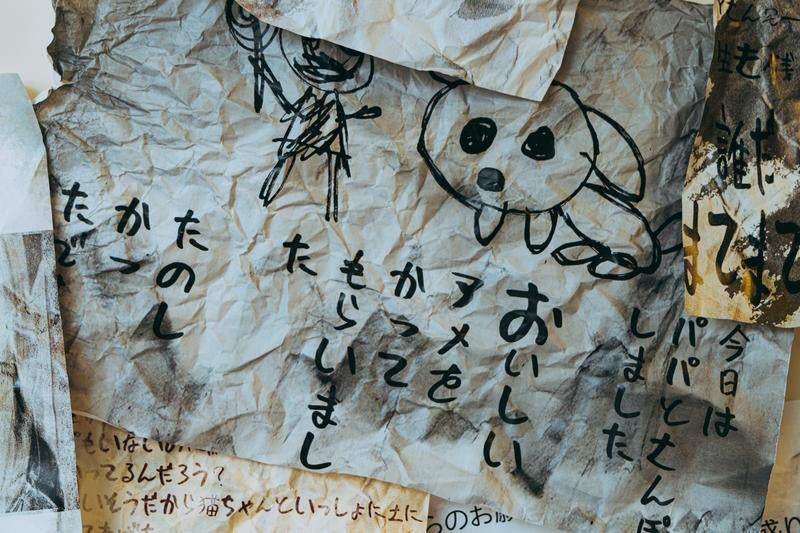 今日は
パパとさんぽ
しました
おいしい
アメを
かって
もらいまし
た
たのし
かっ
たで
もいない
ってるんだろう?
いそうだから猫ちゃんといっしょに土に
のお